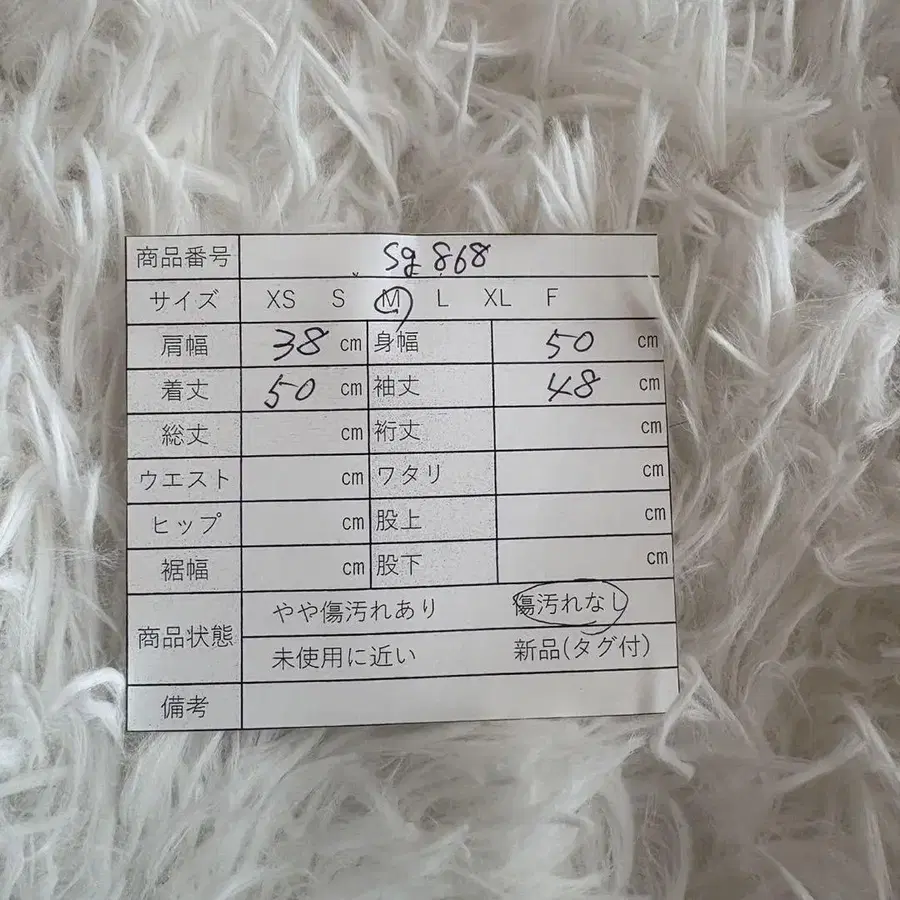 商品番号 Sg 868
サイズ XS S M L XL F
肩幅 38 cm 身幅 50 cm
着丈 50 cm 袖丈 48 cm
総丈 cm 裄丈 cm
ウエスト cm ワタリ cm
ヒップ cm 股上 cm
裾幅 cm 股下 cm
商品状態 やや傷汚れあり 傷汚れなし
未使用に近い 新品(タグ付)
備考